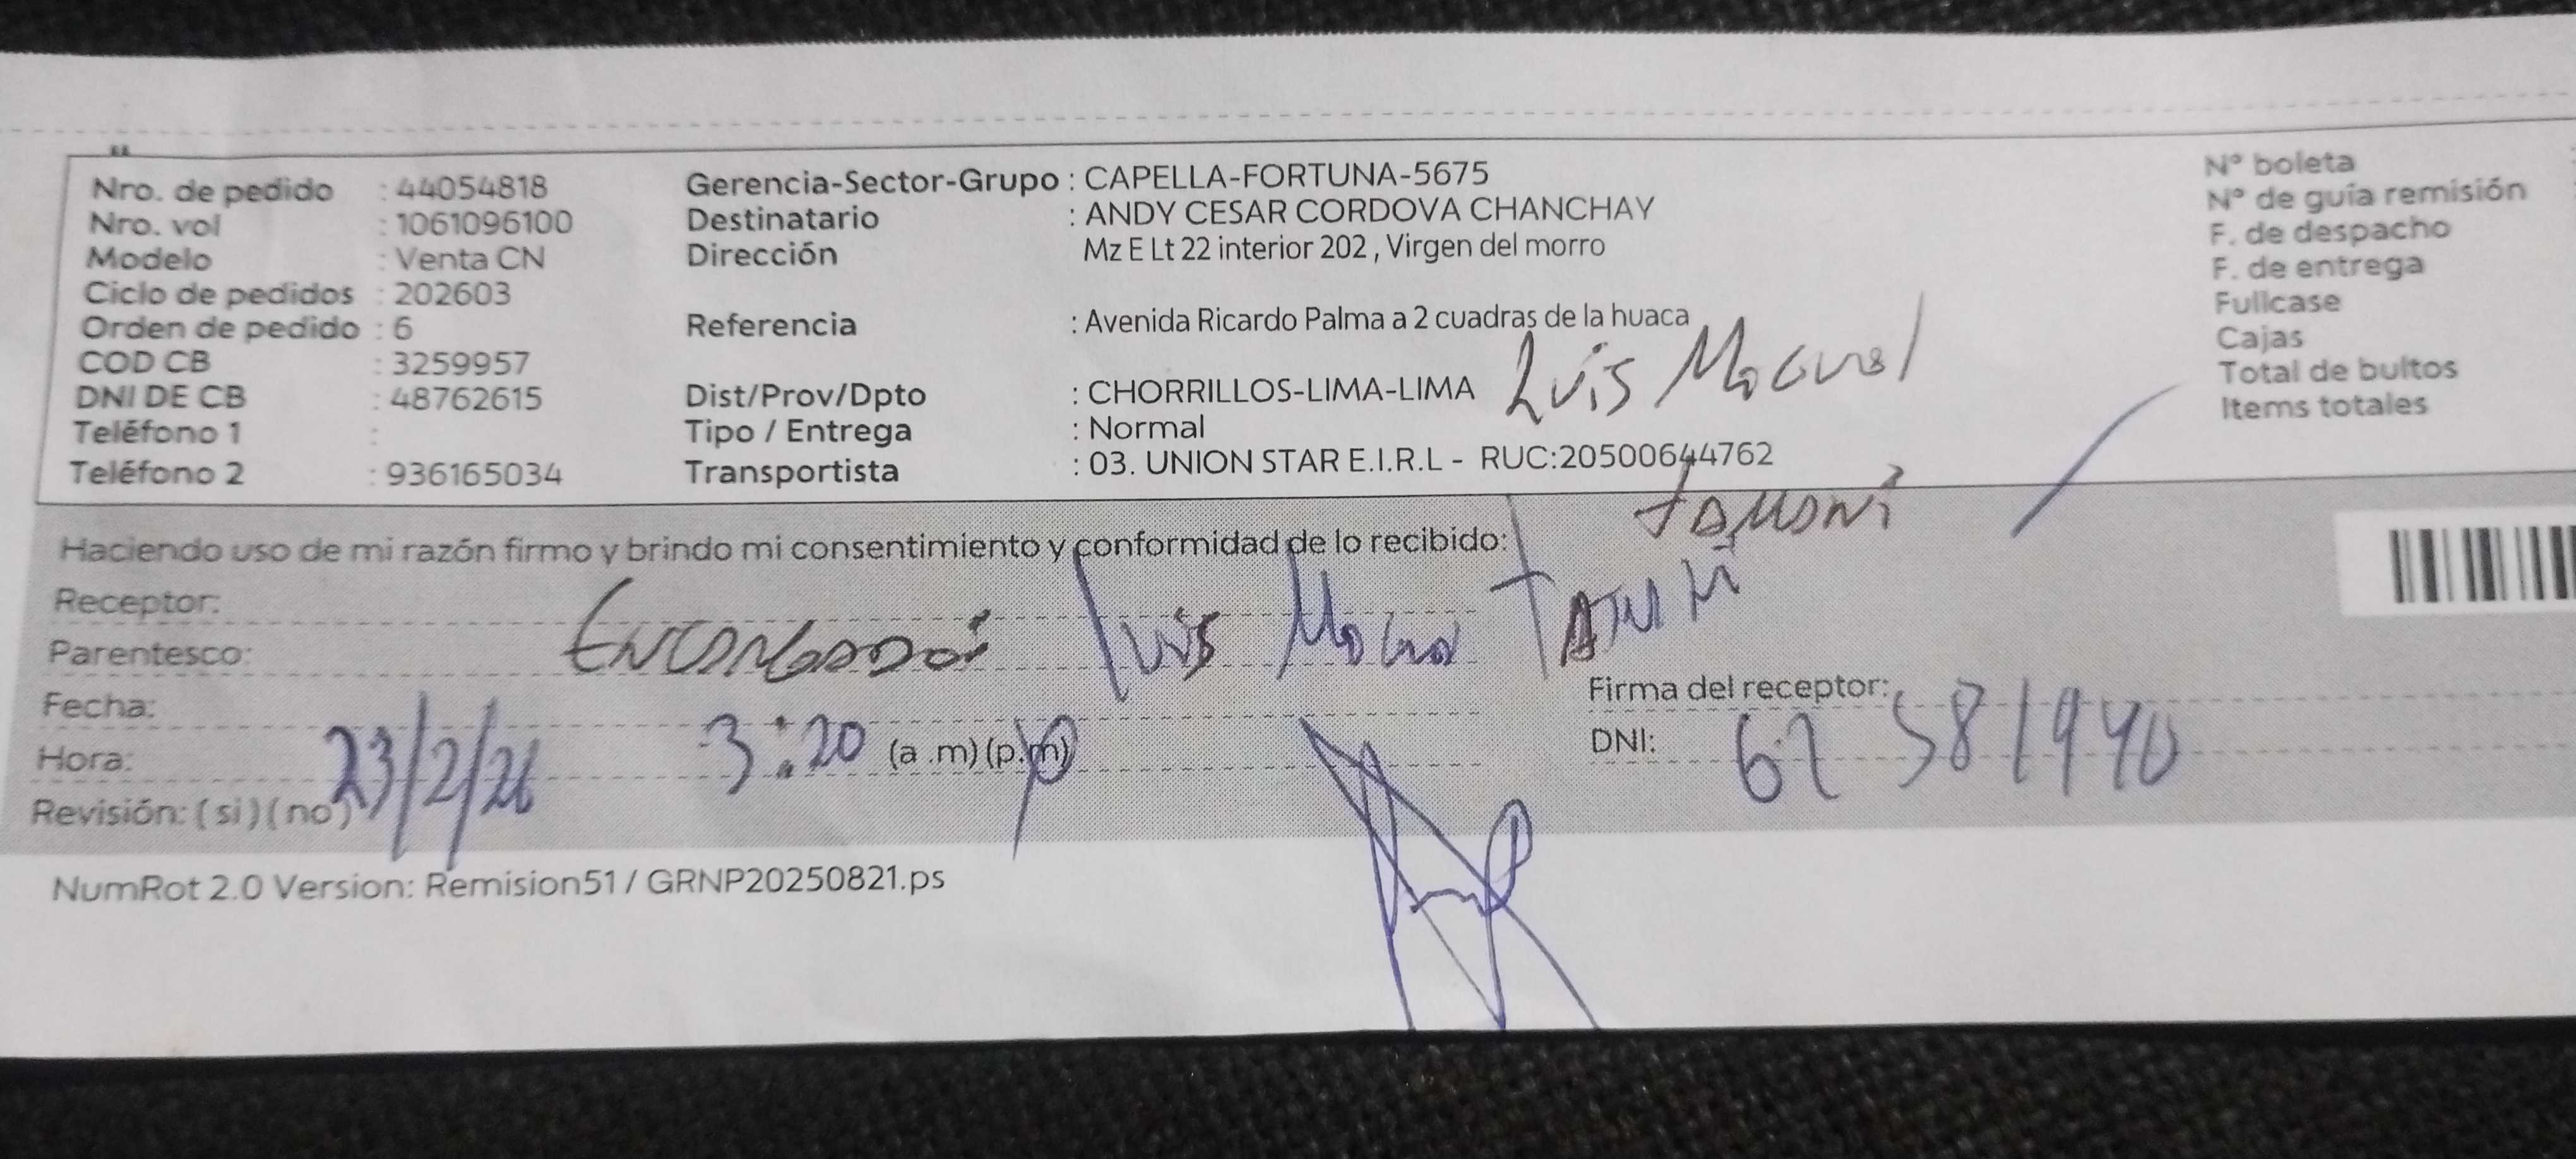 Nro. de pedido : 44054818
Nro. vol : 1061096100
Modelo : Venta CN
Ciclo de pedidos : 202603
Orden de pedido : 6
COD CB : 3259957
DNI DE CB : 48762615
Teléfono 1 :
Teléfono 2 : 936165034
Gerencia-Sector-Grupo : CAPELLA-FORTUNA-5675
Destinatario : ANDY CESAR CORDOVA CHANCHAY
Dirección Mz E Lt 22 interior 202 , Virgen del morro
Referencia : Avenida Ricardo Palma a 2 cuadras de la huaca
Dist/Prov/Dpto : CHORRILLOS-LIMA-LIMA
Tipo / Entrega : Normal
Transportista : 03. UNION STAR E.I.R.L - RUC:20500644762
Luis
N° boleta
N° de guía remisión
F. de despacho
F. de entrega
Fullcase
Cajas
Total de bultos
Items totales
Haciendo uso de mi razón firmo y brindo mi consentimiento y conformidad de lo recibido:
Receptor:
Parentesco: Luis
Fecha:
Hora: 23/2/26 3:20 (a .m) (p.m)
Revisión: ( si ) ( no )
Firma del receptor:
DNI:
NumRot 2.0 Version: Remision51 / GRNP20250821.ps